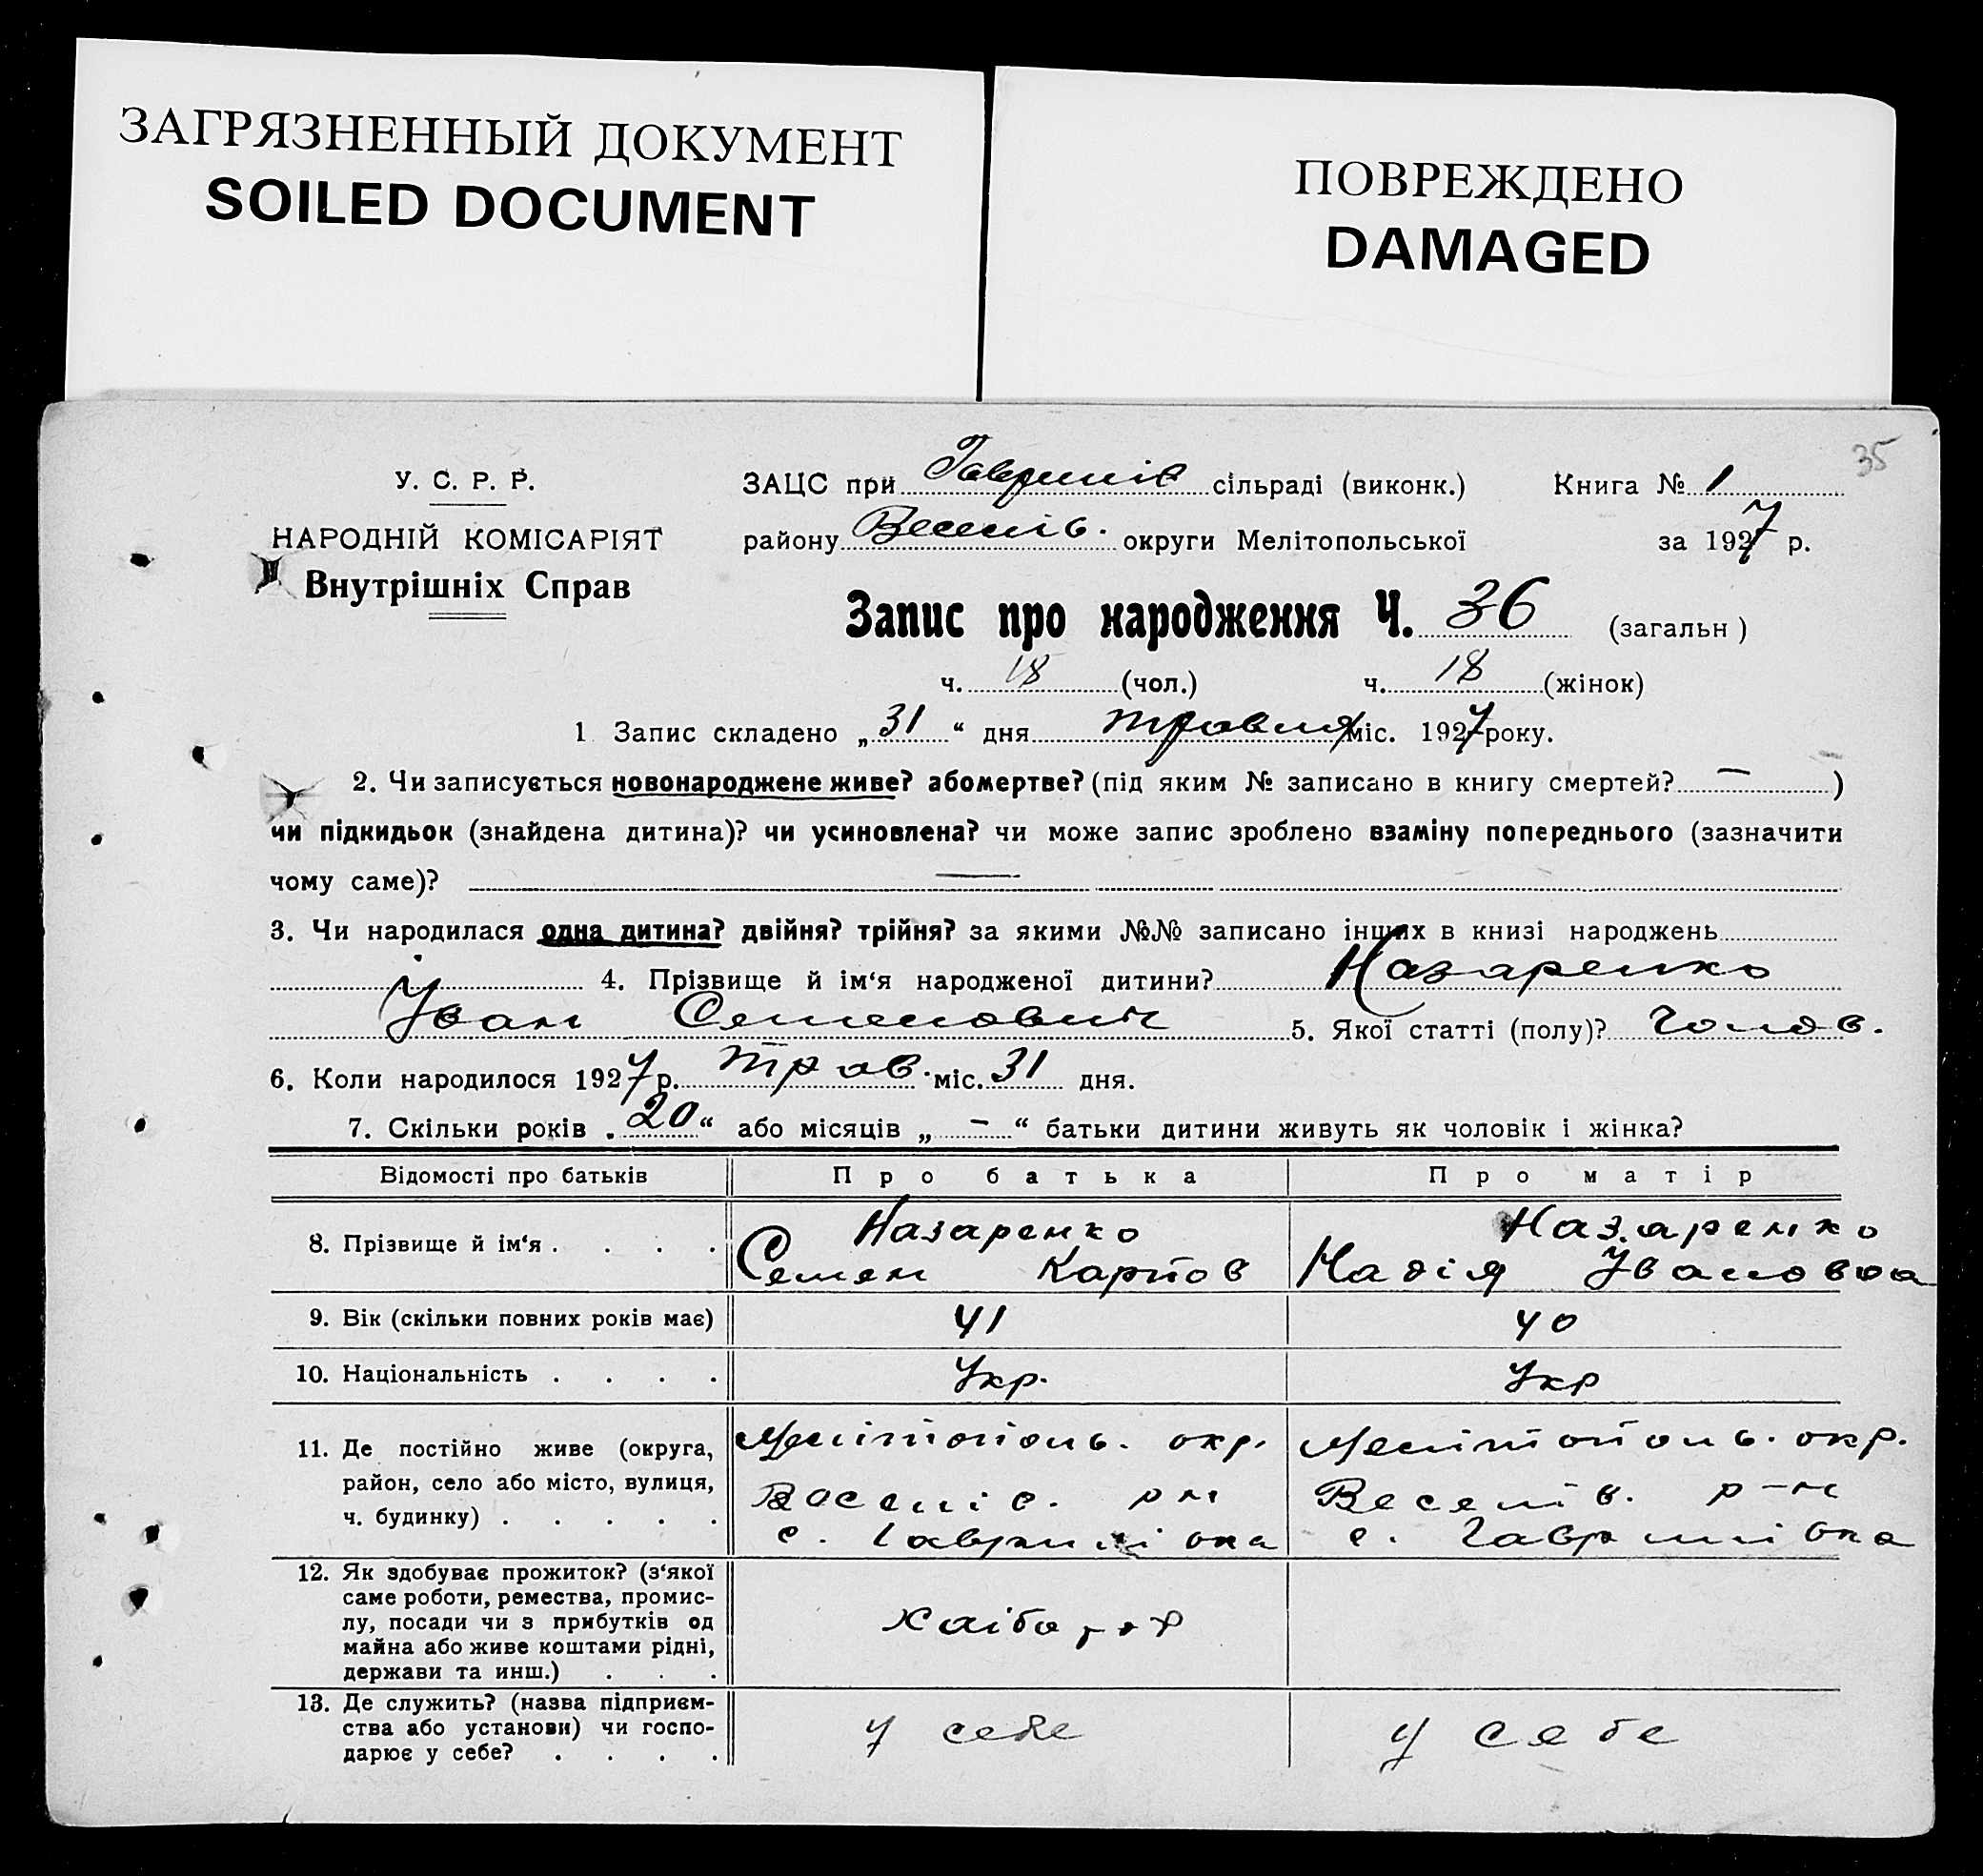 ЗАГРЯЗНЕННЫЙ ДОКУМЕНТ
SOILED DOCUMENT
ПОВРЕЖДЕНО
DAMAGED
35
У. С. Р. Р.
НАРОДНІЙ КОМІСАРІЯТ
Внутрішніх Справ
ЗАЦС при Гаврилів сільраді (виконк.) Книга № 1
району Веселів. округи Мелітопольської за 1927 р.
Запис про народження Ч. 36 (загальн)
ч. 18 (чол.) ч. 18 (жінок)
1 Запис складено „31“ дня травня міс. 1927 року.
2. Чи записується новонароджене живе? або мертве? (під яким № записано в книгу смертей? — )
чи підкидьок (знайдена дитина)? чи усиновлена? чи може запис зроблено взаміну попереднього (зазначити
чому саме)? —
3. Чи народилася одна дитина? двійня? трійня? за якими №№ записано інших в книзі народжень
4. Прізвище й ім‘я народженої дитини? Назаренко
Іван Семенович 5. Якої статті (полу)? Чолов.
6. Коли народилося 1927 р. трав. міс. 31 дня.
7. Скільки років „20“ або місяців „—“ батьки дитини живуть як чоловік і жінка?
Відомості про батьків Про батька Про матір
8. Прізвище й ім‘я . . . . Назаренко Назаренко
Семен Карпов Надія Івановна
9. Вік (скільки повних років має) 41 40
10. Національність . . . . Укр. Укр
11. Де постійно живе (округа, Мелітополь. окр. Мелітополь. окр.
район, село або місто, вулиця, Веселів. рн Веселів. р-н
ч. будинку) . . . . . с. Гаврилівка с. Гаврилівка
12. Як здобуває прожиток? (з‘якої
саме роботи, ремества, промис-
лу, посади чи з прибутків од Хлібороб
майна або живе коштами рідні,
держави та инш.) . . .
13. Де служить? (назва підприєм-
ства або установи) чи госпо- у себе у себе
дарює у себе? . . . .